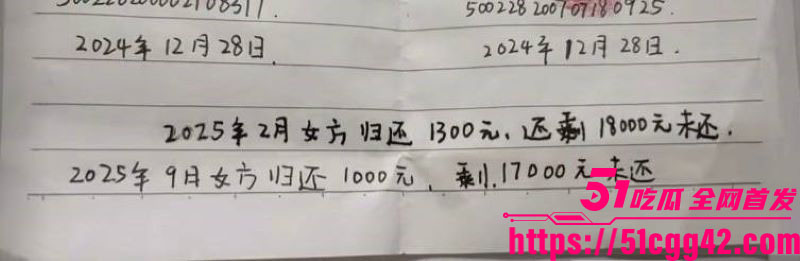 500228200707180925.
2024年12月28日. 2024年12月28日.
2025年2月女方归还1300元,还剩18000元未还.
2025年9月女方归还1000元,剩17000元未还
51吃瓜 全网首发
https://51cgg42.com